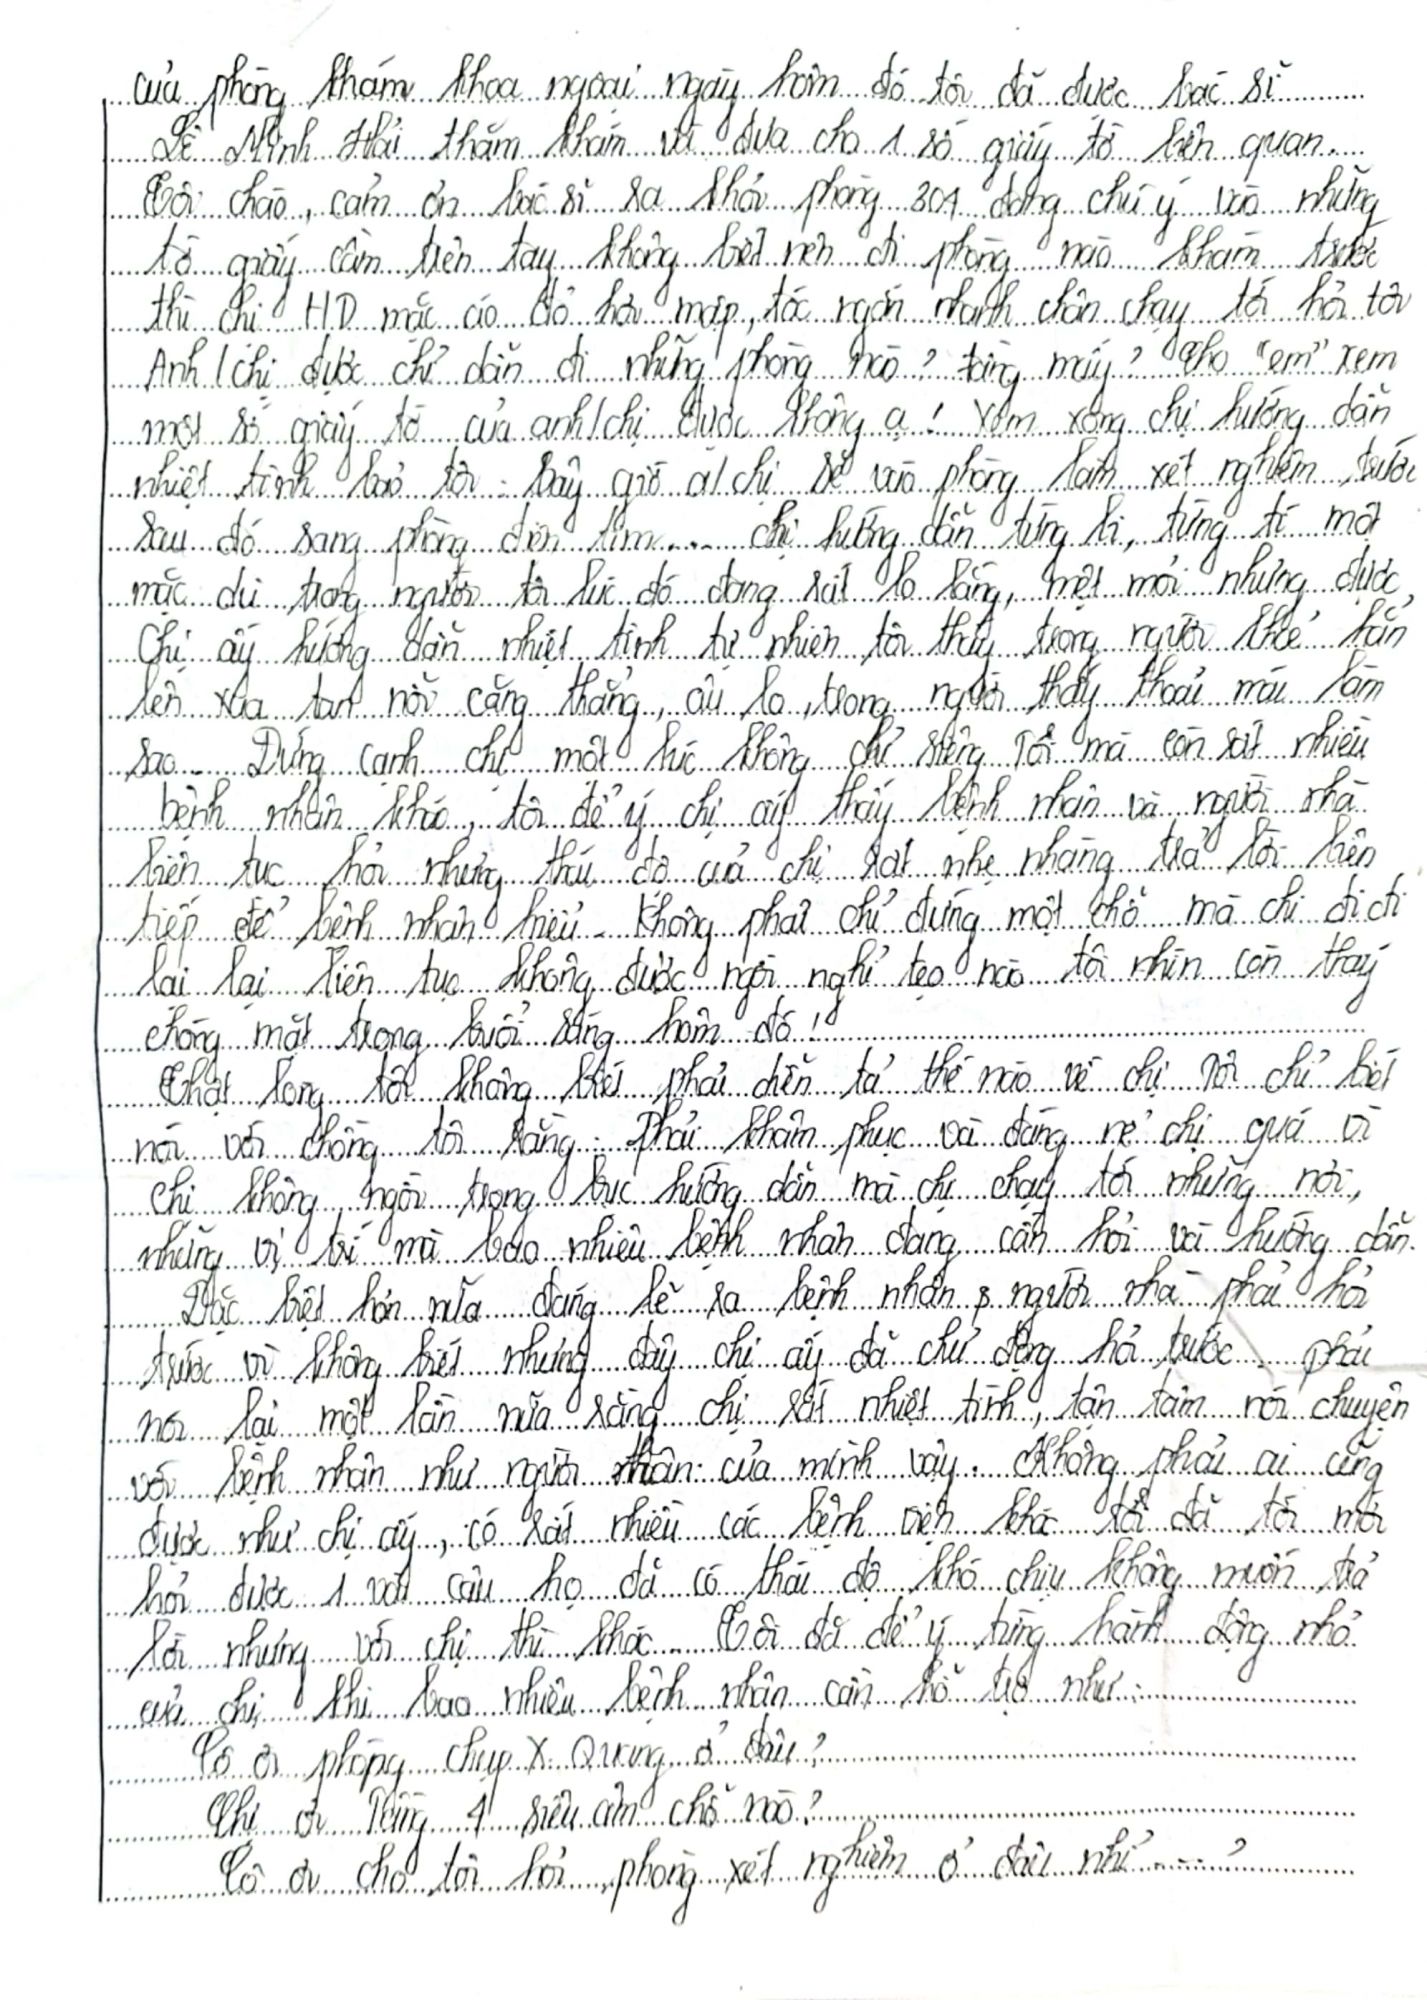 của phòng khám khoa ngoại ngày hôm đó tôi đã được bác sĩ
Lê Minh Hải thăm khám và đưa cho 1 số giấy tờ liên quan.
Tôi chào, cảm ơn bác sĩ ra khỏi phòng 301 đang chú ý vào những
tờ giấy cầm trên tay không biết nên đi phòng nào khám trước
thì chị HD mặc áo đỏ hơi mập, tóc ngắn nhanh chân chạy tới hỏi tôi
Anh/chị được chỉ dẫn đi những phòng nào? tầng mấy? cho "em" xem
một số giấy tờ của anh/chị được không ạ! Xem xong chị hướng dẫn
nhiệt tình bảo tôi: bây giờ a/chị sẽ vào phòng làm xét nghiệm trước
sau đó sang phòng điện tim.... chị hướng dẫn từng li, từng tí một
mặc dù trong người tôi lúc đó đang rất lo lắng, mệt mỏi nhưng được
Chị ấy hướng dẫn nhiệt tình tự nhiên tôi thấy trong người khoẻ hẳn
lên xua tan nỗi căng thẳng, âu lo, trong người thấy thoải mái làm
sao.. Đứng cạnh chị một lúc không chỉ riêng Tôi mà còn rất nhiều
bệnh nhân khác, tôi để ý chị ấy thấy bệnh nhân và người nhà
liên tục hỏi nhưng thái độ của chị rất nhẹ nhàng trả lời liên
tiếp để bệnh nhân hiểu. Không phải chỉ đứng một chỗ mà chị đi đi
lại lại liên tục không được ngồi nghỉ tẹo nào tôi nhìn còn thấy
chóng mặt trong buổi sáng hôm đó!
Thật lòng tôi không biết phải diễn tả thế nào về chị Tôi chỉ biết
nói với chồng tôi rằng: Phải khâm phục và đáng nể chị quá vì
chị không ngồi trong bục hướng dẫn mà chị chạy tới những nơi,
những vị trí mà bao nhiêu bệnh nhân đang cần hỏi và hướng dẫn.
Đặc biệt hơn nữa đáng lẽ ra bệnh nhân, người nhà phải hỏi
trước vì không biết nhưng đây chị ấy đã chủ động hỏi trước. phải
nói lại một lần nữa rằng chị rất nhiệt tình, tận tâm nói chuyện
với bệnh nhân như người thân của mình vậy. Không phải ai cũng
được như chị ấy, có rất nhiều các bệnh viện khác tôi đã tới mới
hỏi được 1 vài câu họ đã có thái độ khó chịu không muốn trả
lời nhưng với chị thì khác. Tôi đã để ý từng hành động nhỏ
của chị khi bao nhiêu bệnh nhân cần hỗ trợ như:
Cô ơi phòng chụp X. Quang ở đâu?
Chị ơi Tầng 4 siêu âm chỗ nào?
Cô ơi cho tôi hỏi, phòng xét nghiệm ở đâu nhỉ....?